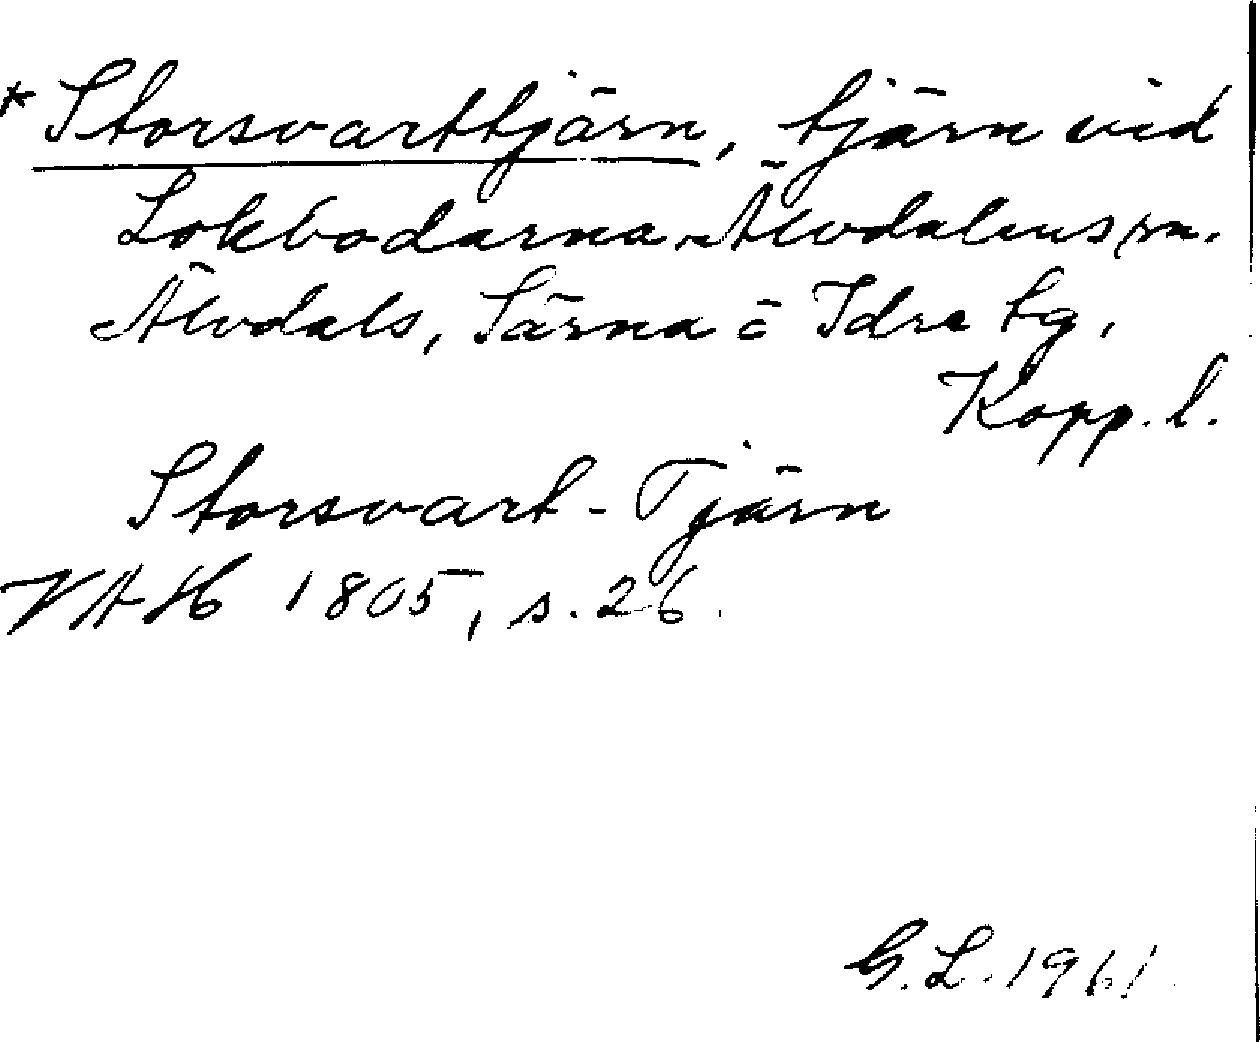 * Storsvarttjärn, tjärn vid
Lokbodarna, Älvdalens sn.
Älvdals, Särna ö Idre tg,
Kopp. l.
Storsvart-Tjärn
VAH 1805, s. 26.
G. L. 1961.